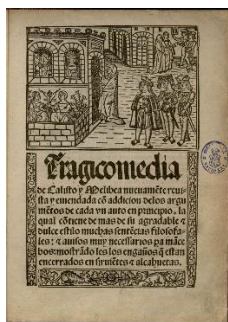 Tragicomedia
de Calisto y Melibea nueuamẽte reuis
ta y emendada cõ addicion delos argu
mẽtos de cada vn auto en principio. la
qual cõtiene de mas de su agradable ⁊
dulce estilo muchas sentẽcias filosofa
les: ⁊ auisos muy necessarios pa mãce
bos: mostrãdo les los engaños q̃ estan
encerrados en seruiẽtes ⁊ alcahuetas.